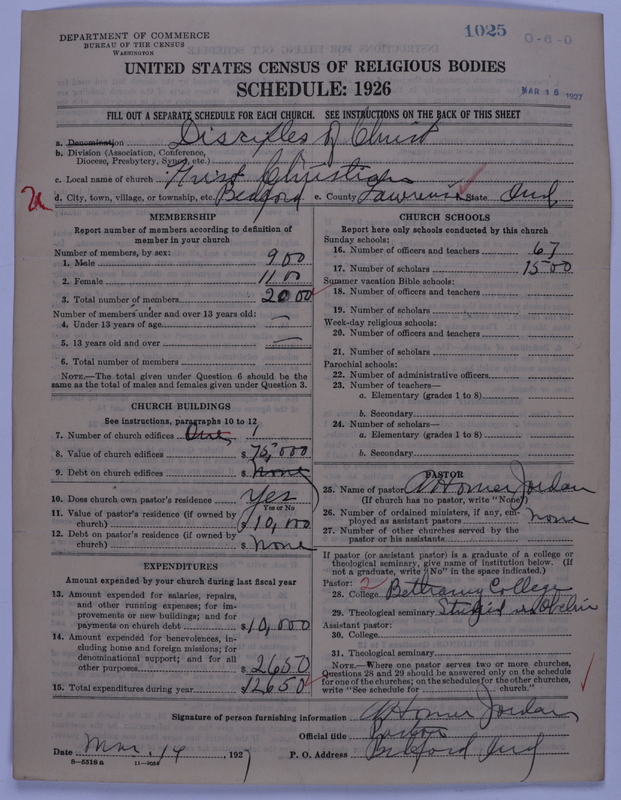 DEPARTMENT OF COMMERCE
BUREAU OF THE CENSUS
WASHINGTON
1025
0-6-0
UNITED STATES CENSUS OF RELIGIOUS BODIES
SCHEDULE: 1926
MAR 16 1927
FILL OUT A SEPARATE SCHEDULE FOR EACH CHURCH. SEE INSTRUCTIONS ON THE BACK OF THIS SHEET
a. Denomination Disciples of Christ
b. Division (Association, Conference,
Diocese, Presbytery, Synod, etc.)
c. Local name of church First Christian
2a d. City, town, village, or township, etc. Bedford e. County Lawrence State Ind
MEMBERSHIP
Report number of members according to definition of
member in your church
Number of members, by sex:
1. Male 900
2. Female 1100
3. Total number of members 2000
Number of members under and over 13 years old:
4. Under 13 years of age —
5. 13 years old and over —
6. Total number of members
NOTE.—The total given under Question 6 should be the
same as the total of males and females given under Question 3.
CHURCH BUILDINGS
See instructions, paragraphs 10 to 12
7. Number of church edifices One 1
8. Value of church edifices $ 75,000
9. Debt on church edifices $ None
10. Does church own pastor's residence Yes
Yes or No
11. Value of pastor's residence (if owned by
church) $ 10,000
12. Debt on pastor's residence (if owned by
church) $ None
EXPENDITURES
Amount expended by your church during last fiscal year
13. Amount expended for salaries, repairs,
and other running expenses; for im-
provements or new buildings; and for
payments on church debt $ 10,000
14. Amount expended for benevolences, in-
cluding home and foreign missions; for
denominational support; and for all
other purposes $ 2650
15. Total expenditures during year $ 12650
CHURCH SCHOOLS
Report here only schools conducted by this church
Sunday schools:
16. Number of officers and teachers 67
17. Number of scholars 1500
Summer vacation Bible schools:
18. Number of officers and teachers
19. Number of scholars
Week-day religious schools:
20. Number of officers and teachers
21. Number of scholars
Parochial schools:
22. Number of administrative officers
23. Number of teachers—
a. Elementary (grades 1 to 8)
b. Secondary
24. Number of scholars—
a. Elementary (grades 1 to 8)
b. Secondary
PASTOR
25. Name of pastor Homer Jordan
(If church has no pastor, write "None")
26. Number of ordained ministers, if any, em-
ployed as assistant pastors none
27. Number of other churches served by the
pastor or his assistants
If pastor (or assistant pastor) is a graduate of a college or
theological seminary, give name of institution below. (If
not a graduate, write "No" in the space indicated.)
Pastor: 2
28. College Bethany College
29. Theological seminary Studied in Oberlin
Assistant pastor:
30. College
31. Theological seminary
NOTE.—Where one pastor serves two or more churches,
Questions 28 and 29 should be answered only on the schedule
for one of the churches; on the schedules for the other churches,
write "See schedule for church."
Signature of person furnishing information Homer Jordan
Official title Pastor
Date Mar. 14, 1927 P. O. Address Bedford Ind
8—5518 a 11—9034